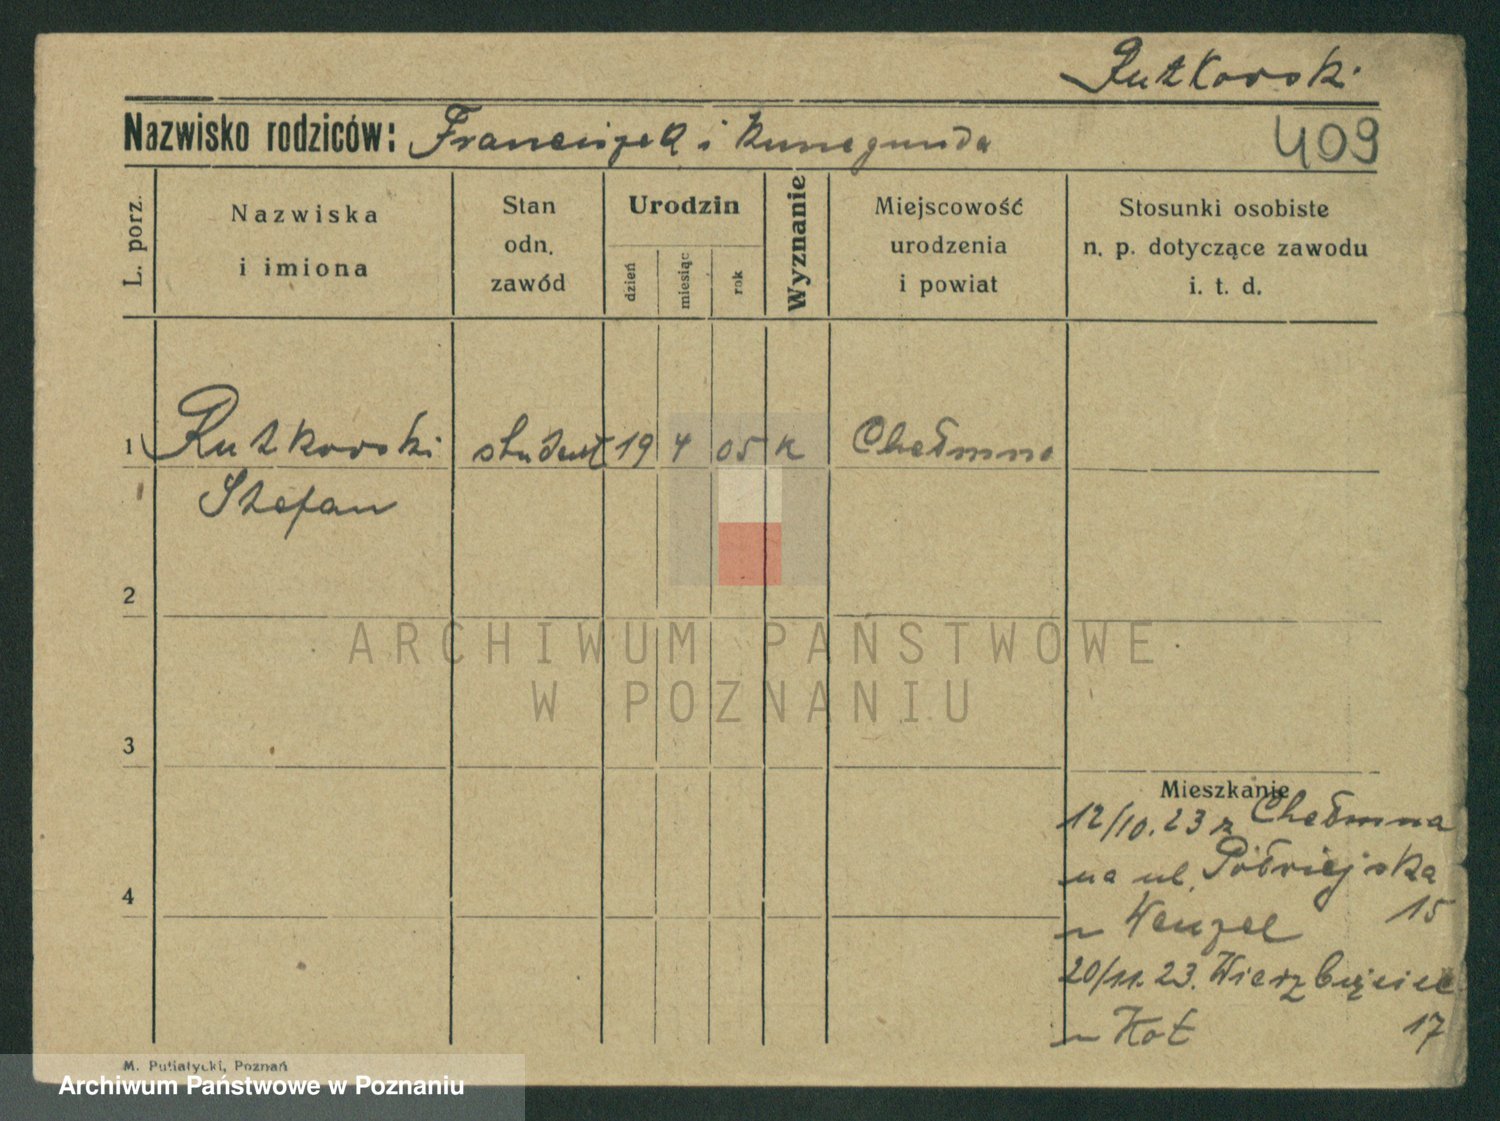 Rutkowski
Nazwisko rodziców: Franciszek i Kunegunda
409
L. porz.
Nazwiska
i imiona
Stan
odn.
zawód
Urodzin
dzień
miesiąc
rok
Wyznanie
Miejscowość
urodzenia
i powiat
Stosunki osobiste
n. p. dotyczące zawodu
i. t. d.
1 Rutkowski student 19 4 05 k Chełmno
Stefan
2
3
4
ARCHIWUM PAŃSTWOWE
W POZNANIU
Mieszkanie
12/10.23 z Chełmna
na ul. Półwiejska
15
u Wenzel
20/11.23. Wierzbięcice
17
u Kot
M. Putiatycki, Poznań
Archiwum Państwowe w Poznaniu